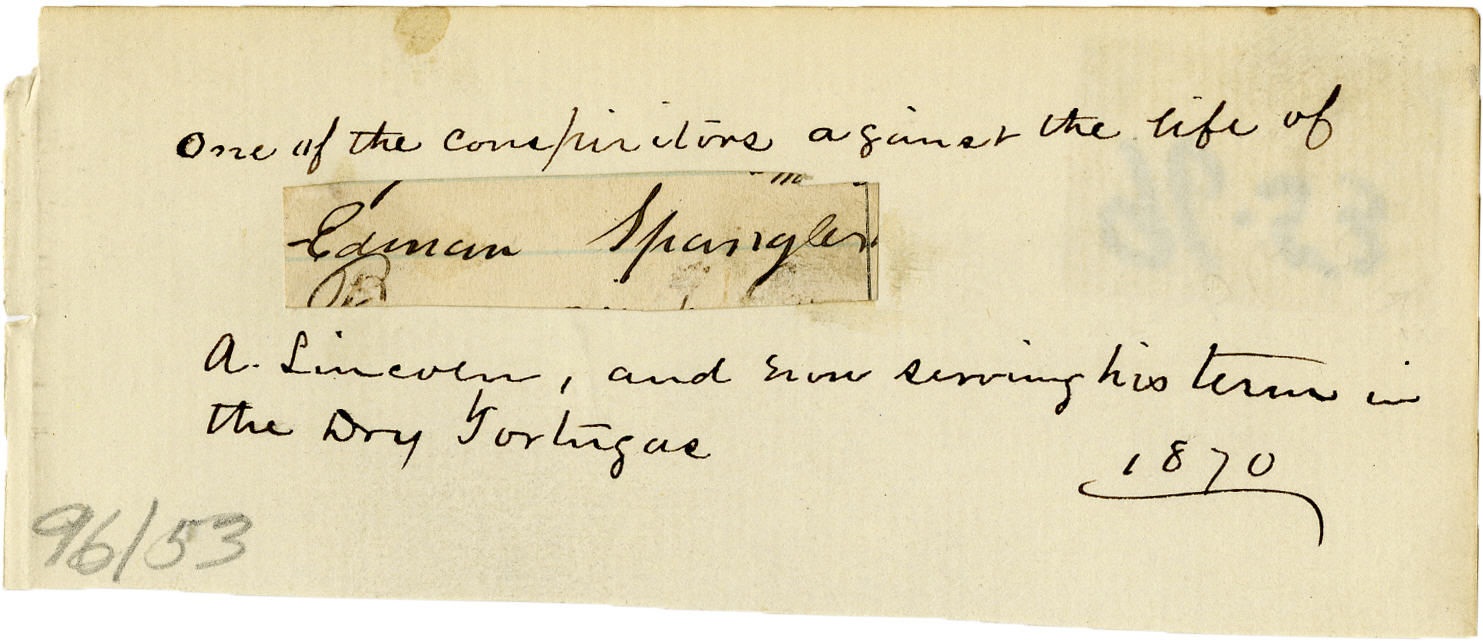 One of the conspiritors against the life of
Edman Spangler
A. Lincoln, and now serving his term in
the Dry Tortugas
1870
96/53